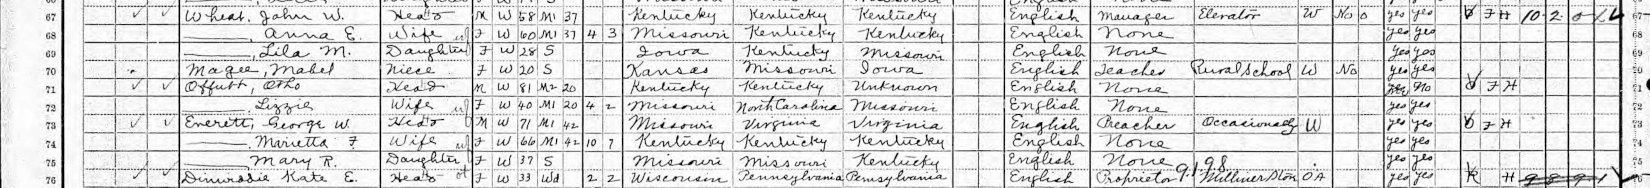 67 Wheat, John W. Head M W 58 M1 37 Kentucky Kentucky Kentucky English Manager Elevator W No 0 yes yes O F H 10-2-0
68 ——, Anna E. Wife F W 60 M1 37 4 3 Missouri Kentucky Kentucky English None yes yes 68
69 ——, Lila M. Daughter F W 28 S Iowa Kentucky Missouri English None yes yes 69
70 Magee, Mabel Niece F W 20 S Kansas Missouri Iowa English Teacher Rural School W No yes yes 70
71 Offutt, Otho Head M W 81 M2 20 Kentucky Kentucky Unknown English None No O F H 71
72 ——, Lizzie Wife F W 40 M1 20 4 2 Missouri North Carolina Missouri English None yes yes 72
73 Everett, George W. Head M W 71 M1 42 Missouri Virginia Virginia English Preacher Occasionally W yes yes O F H 73
74 ——, Marietta F. Wife F W 66 M1 42 10 7 Kentucky Kentucky Kentucky English None yes yes 74
75 ——, Mary R. Daughter F W 37 S Missouri Missouri Kentucky English None yes yes 75
76 Dinwiddie Kate E. Head F W 33 Wd 2 2 Wisconsin Pennsylvania Pennsylvania English Proprietor Millinery Store OA yes yes R H 76